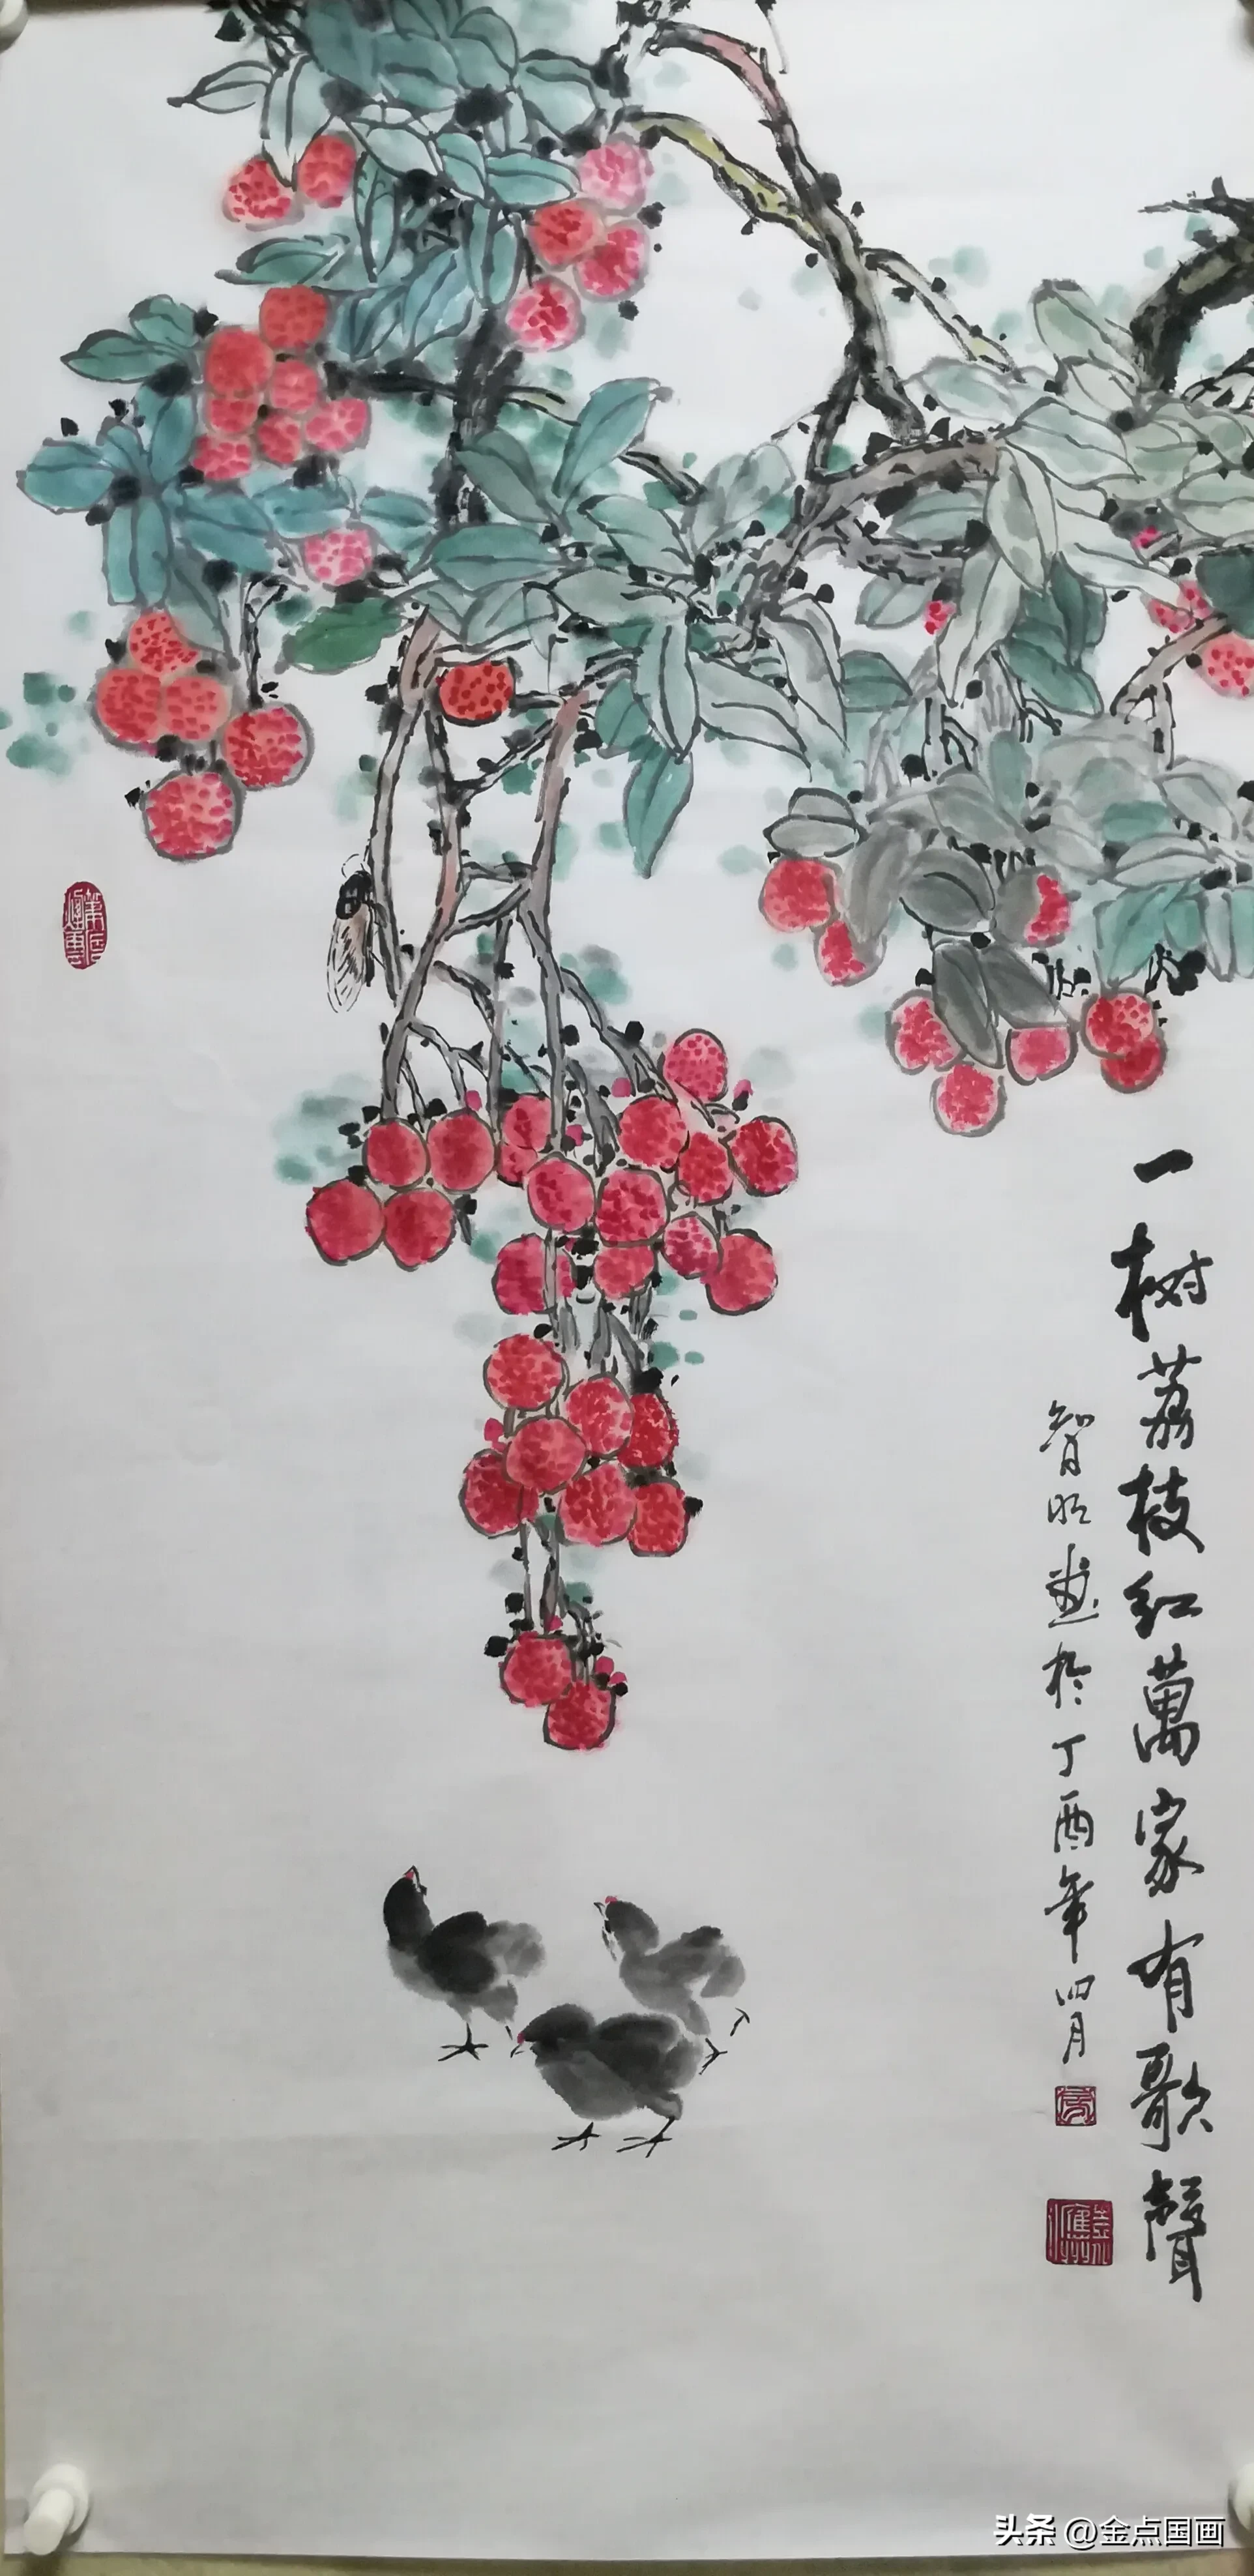 一树荔枝红萬家有歌聲
智明画於丁酉年四月
头条 @金点国画